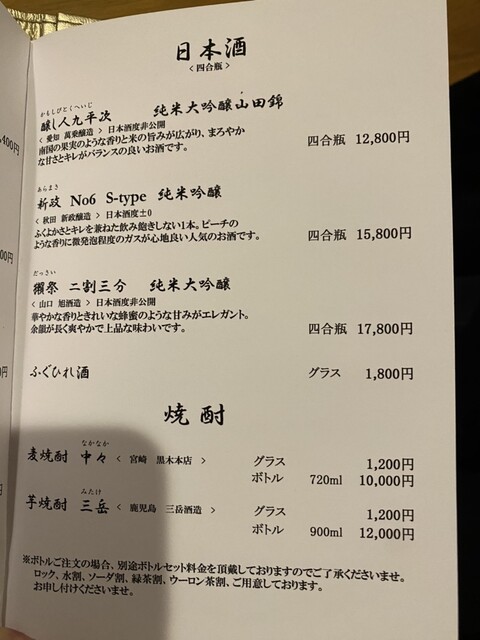 日本酒
< 四合瓶 >
かもしびとくへいじ
醸し人九平次 純米大吟醸山田錦
< 愛知 萬乗醸造 > 日本酒度非公開
南国の果実のような香りと米の旨みが広がり、まろやか
な甘さとキレがバランスの良いお酒です。
四合瓶 12,800円
あらまさ
新政 No6 S-type 純米吟醸
< 秋田 新政醸造 > 日本酒度±0
ふくよかさとキレを兼ねた飲み飽きしない1本。ピーチの
ような香りに微発泡程度のガスが心地良い人気のお酒です。
四合瓶 15,800円
だっさい
獺祭 二割三分 純米大吟醸
< 山口 旭酒造 > 日本酒度非公開
華やかな香りときれいな蜂蜜のような甘みがエレガント。
余韻が長く爽やかで上品な味わいです。
四合瓶 17,800円
ふぐひれ酒 グラス 1,800円
焼酎
なかなか
麦焼酎 中々 < 宮崎 黒木本店 > グラス 1,200円
ボトル 720ml 10,000円
みたけ
芋焼酎 三岳 < 鹿児島 三岳酒造 > グラス 1,200円
ボトル 900ml 12,000円
※ボトルご注文の場合、別途ボトルセット料金を頂戴しておりますのでご了承くださいませ。
ロック、水割、ソーダ割、緑茶割、ウーロン茶割、ご用意しております。
お申し付けくださいませ。